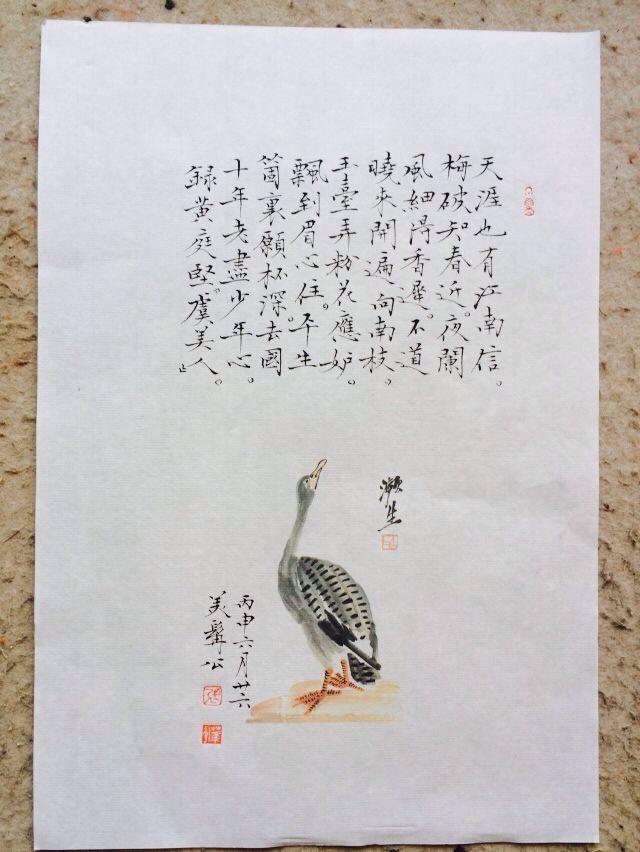 天涯也有江南信。
梅破知春近。夜闌
風細得香遲。不道
曉來開遍向南枝。
玉臺弄粉花應妒。
飄到眉心住。平生
箇裏願杯深。去國
十年老盡少年心。
録黄庭堅。虞美人。
止
漱生
丙申六月廿六
美髯公